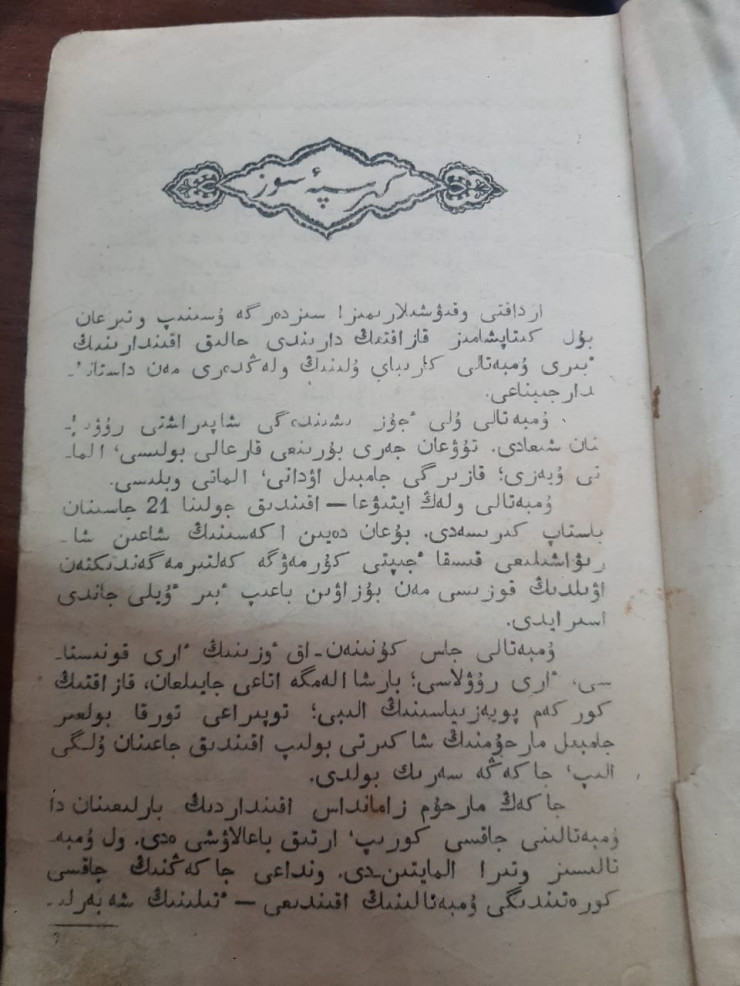 كىرىسپە ٴسوز
ارداقتى وقىۋشىلارىمىز! سىزدەرگە ۇسىنىپ وتىرعان
بۇل كىتاپشامىز قازاقتىڭ دارىندى حالىق اقىندارىنىڭ
ٴبىرى ۇمبەتالى كارىباي ۇلىنىڭ ولەڭدەرى مەن داستاند‍ـ
دارجيىناعى.
ۇمبەتالى ۇلى ٴجۇز ىشىندەگى شاپىراشتى رۋۋىـ
نان شىعادى. تۇۋعان جەرى بۇرىنعى قارعالى بولىسى، الماـ
تى ۋيەزى؛ قازىرگى جامبىل اۋدانى، الماتى وبلىسى.
ۇمبەتالى ولەڭ ايتىۋعا — اقىندىق جولىنا 21 جاسىنان
باستاپ كىرىسەدى. بۇعان دەيىن اكەسىنىڭ شاعىن شاـ
رىۋاشىلىعى قىسقا ٴجىپتى كۇرمەۋگە كەلتىرمەگەندىكتەن
اۋىلدىڭ قوزىسى مەن بۇزاۋىن باعىپ ٴبىر ٴۇيلى جاندى
اسىرايدى.
ۇمبەتالى جاس كۇنىنەن-اق ٴوزىنىڭ ٴارى قونىستاـ
سى، ٴارى رۋۋلاسى؛ بارشا الەمگە اتاعى جايىلعان، قازاقتىڭ
كوركەم پويەزياسىنىڭ الىبى؛ توپىراعى تورقا بولعىر
جامبىل مارحۇمنىڭ شاكىرتى بولىپ اقىندىق جاعىنان ۇلگى
الىپ، جاكەڭە سەرىك بولدى.
جاكەڭ مارحۇم زامانداس اقىنداردىڭ بارلىعىنان دا
ۇمبەتالىنى جاقسى كورىپ، ارتىق باعالاۋشى ەدى. ول ۇمبەـ
تالىسىز وتىرا المايتىن-دى. ونداعى جاكەڭنىڭ جاقسى
كورەتىندىگى ۇمبەتالىنىڭ اقىندىعى — ٴتىلىنىڭ شەبەرلىـ